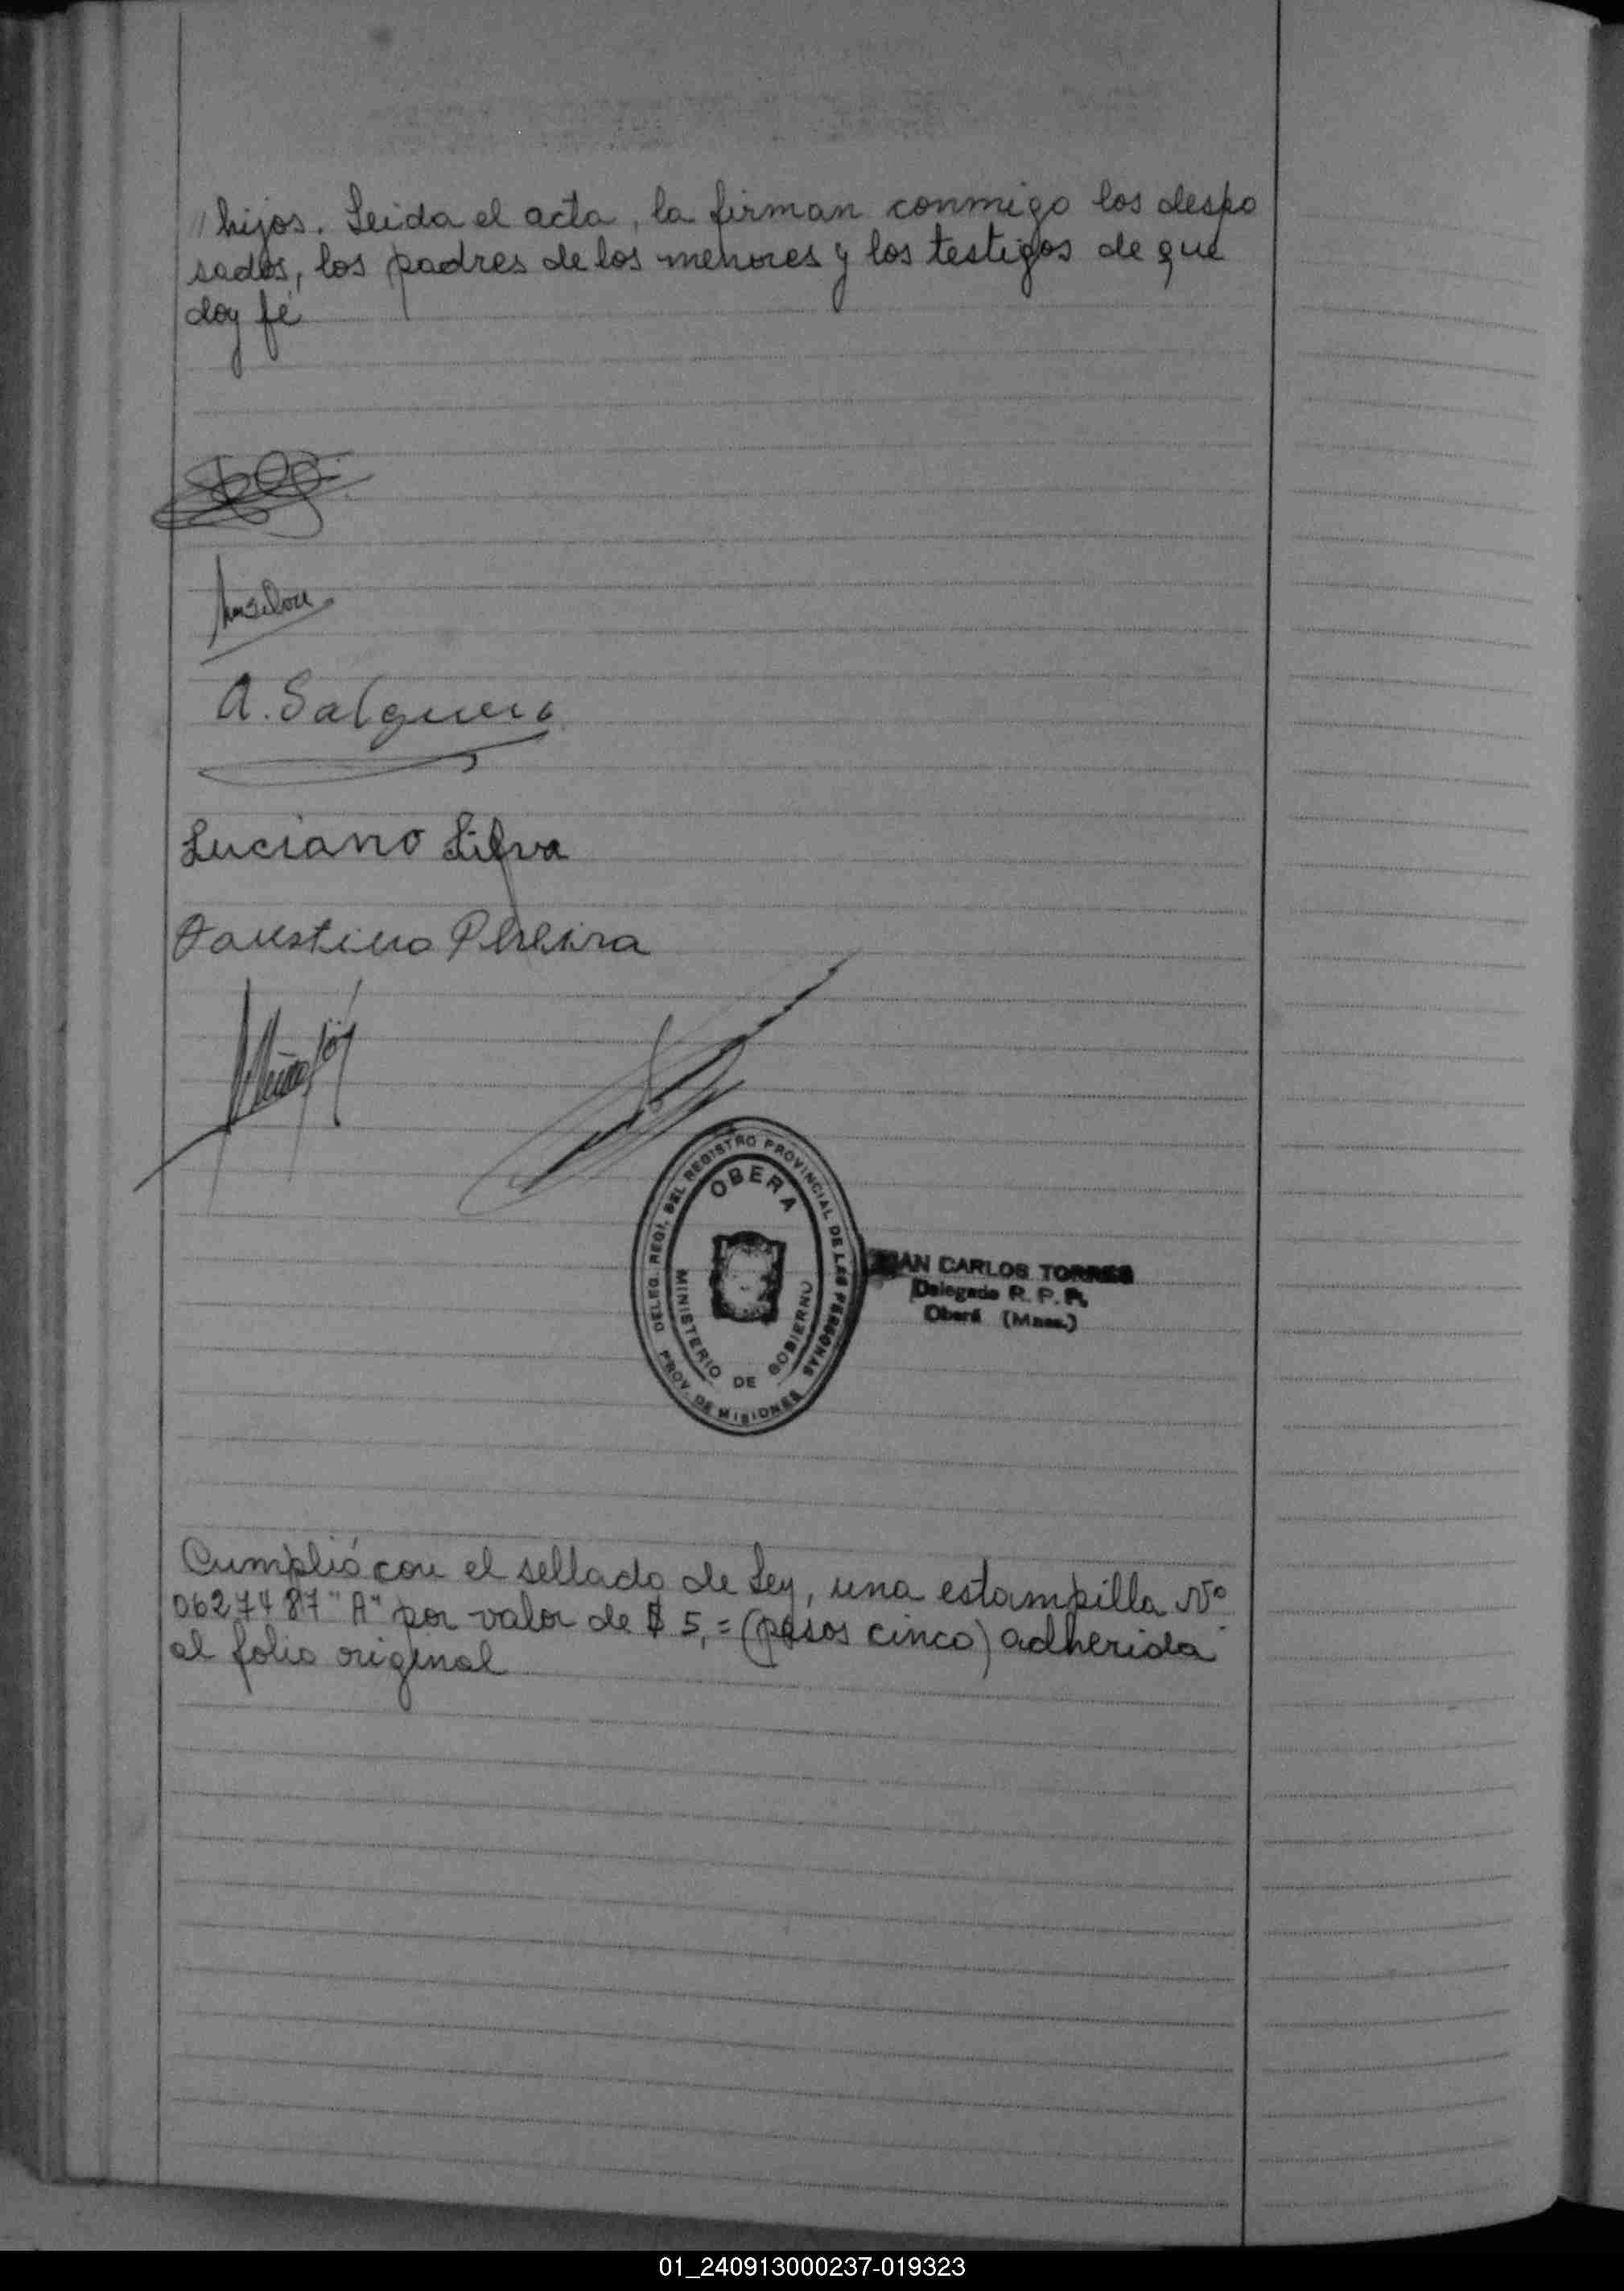 " hijos. Leida el acta, la firman conmigo los despo
sados, los padres de los menores y los testigos de que
doy fé
A. Salguero
Luciano Silva
Faustino Pereira
DELEG. REGI. DEL REGISTRO PROVINCIAL DE LAS PERSONAS
OBERA
MINISTERIO DE GOBIERNO
PROV. DE MISIONES
CARLOS TORRES
Delegado R. P. P.
Oberá (Mnes.)
Cumplió con el sellado de Ley, una estampilla Nº
0627487 "A" por valor de $ 5,= (pesos cinco) adherida
al folio original
01_240913000237-019323